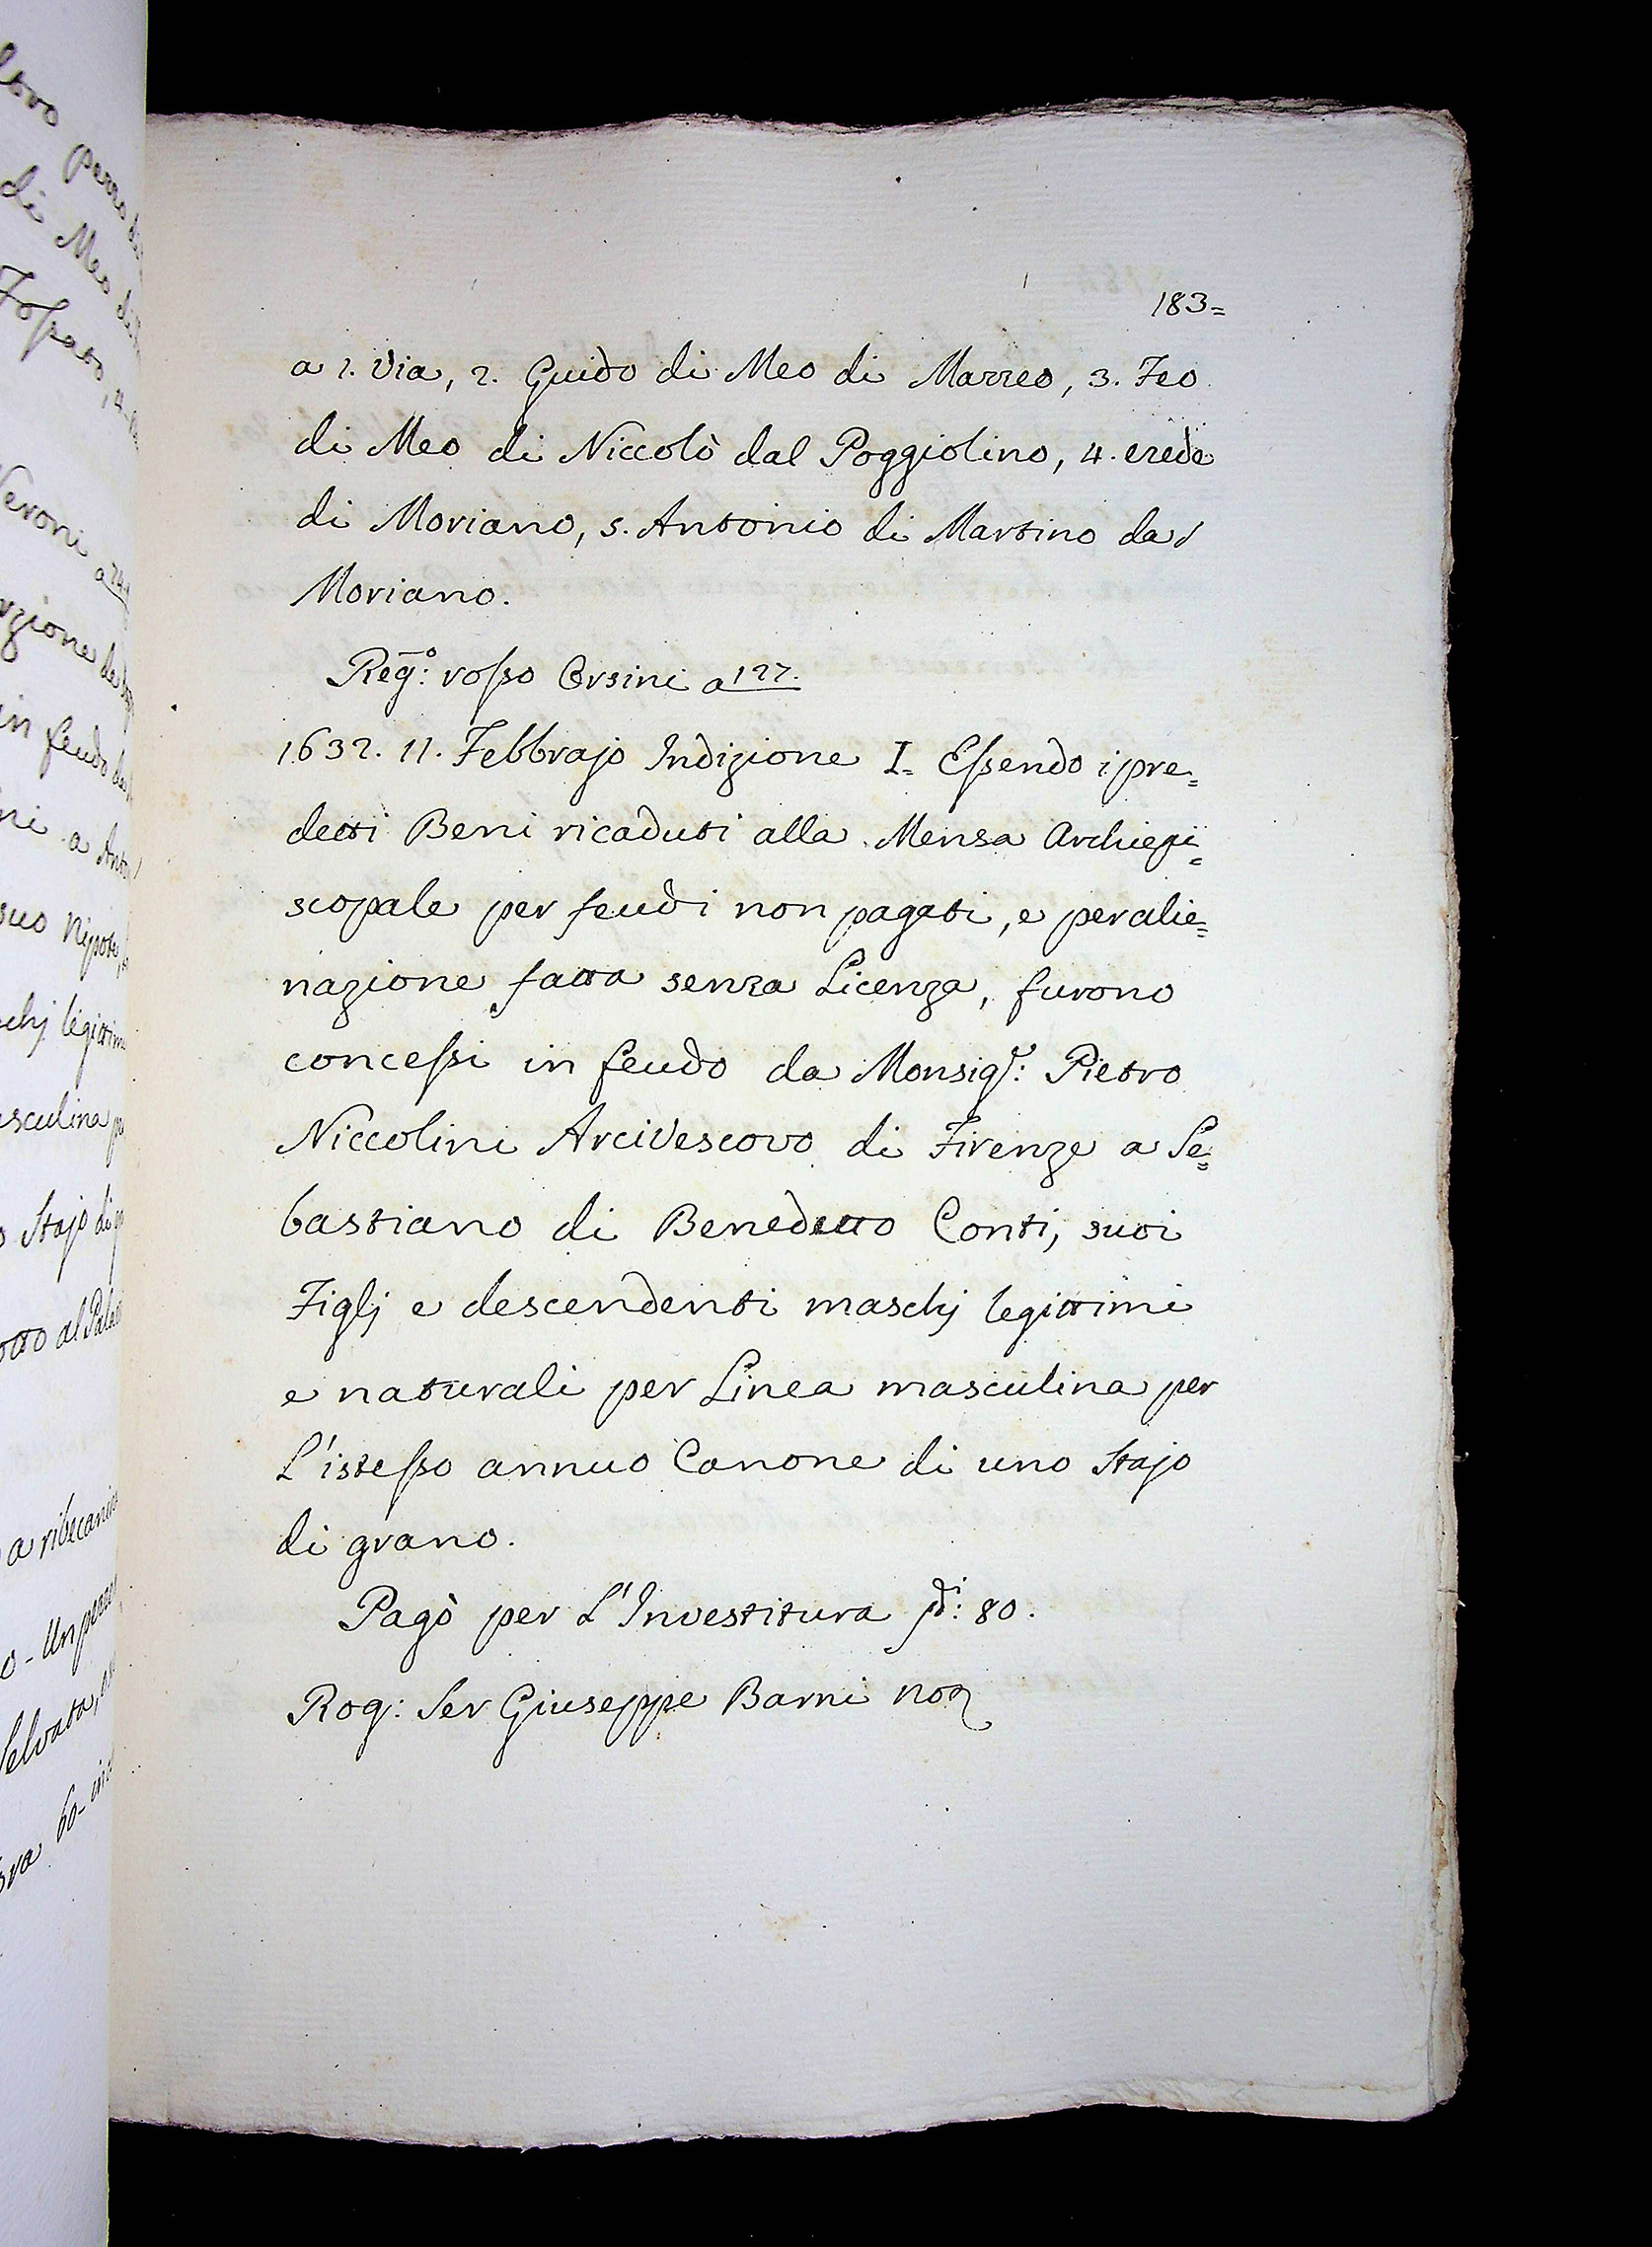 183=
a 1. Via, 2. Guido di Meo di Mazzeo, 3. Feo
di Meo di Niccolò dal Poggiolino, 4. erede
di Moriano, 5. Antonio di Martino da
Moriano.
Reg:º rosso Orsini a 127.
1632. 11. Febbrajo Indizione I= Essendo i pre=
detti Beni ricaduti alla Mensa Archiepi=
scopale per feudi non pagati, e per alie=
nazione fatta senza Licenza, furono
concessi in feudo da Monsigr: Pietro
Niccolini Arcivescovo di Firenze a Se=
bastiano di Benedetto Conti, suoi
Figlj e descendenti maschj legittimi
e naturali per Linea masculina per
L'istesso annuo Canone di uno Stajo
di grano.
Pagò per L'Investitura 80.
Rog: Ser Giuseppe Barni